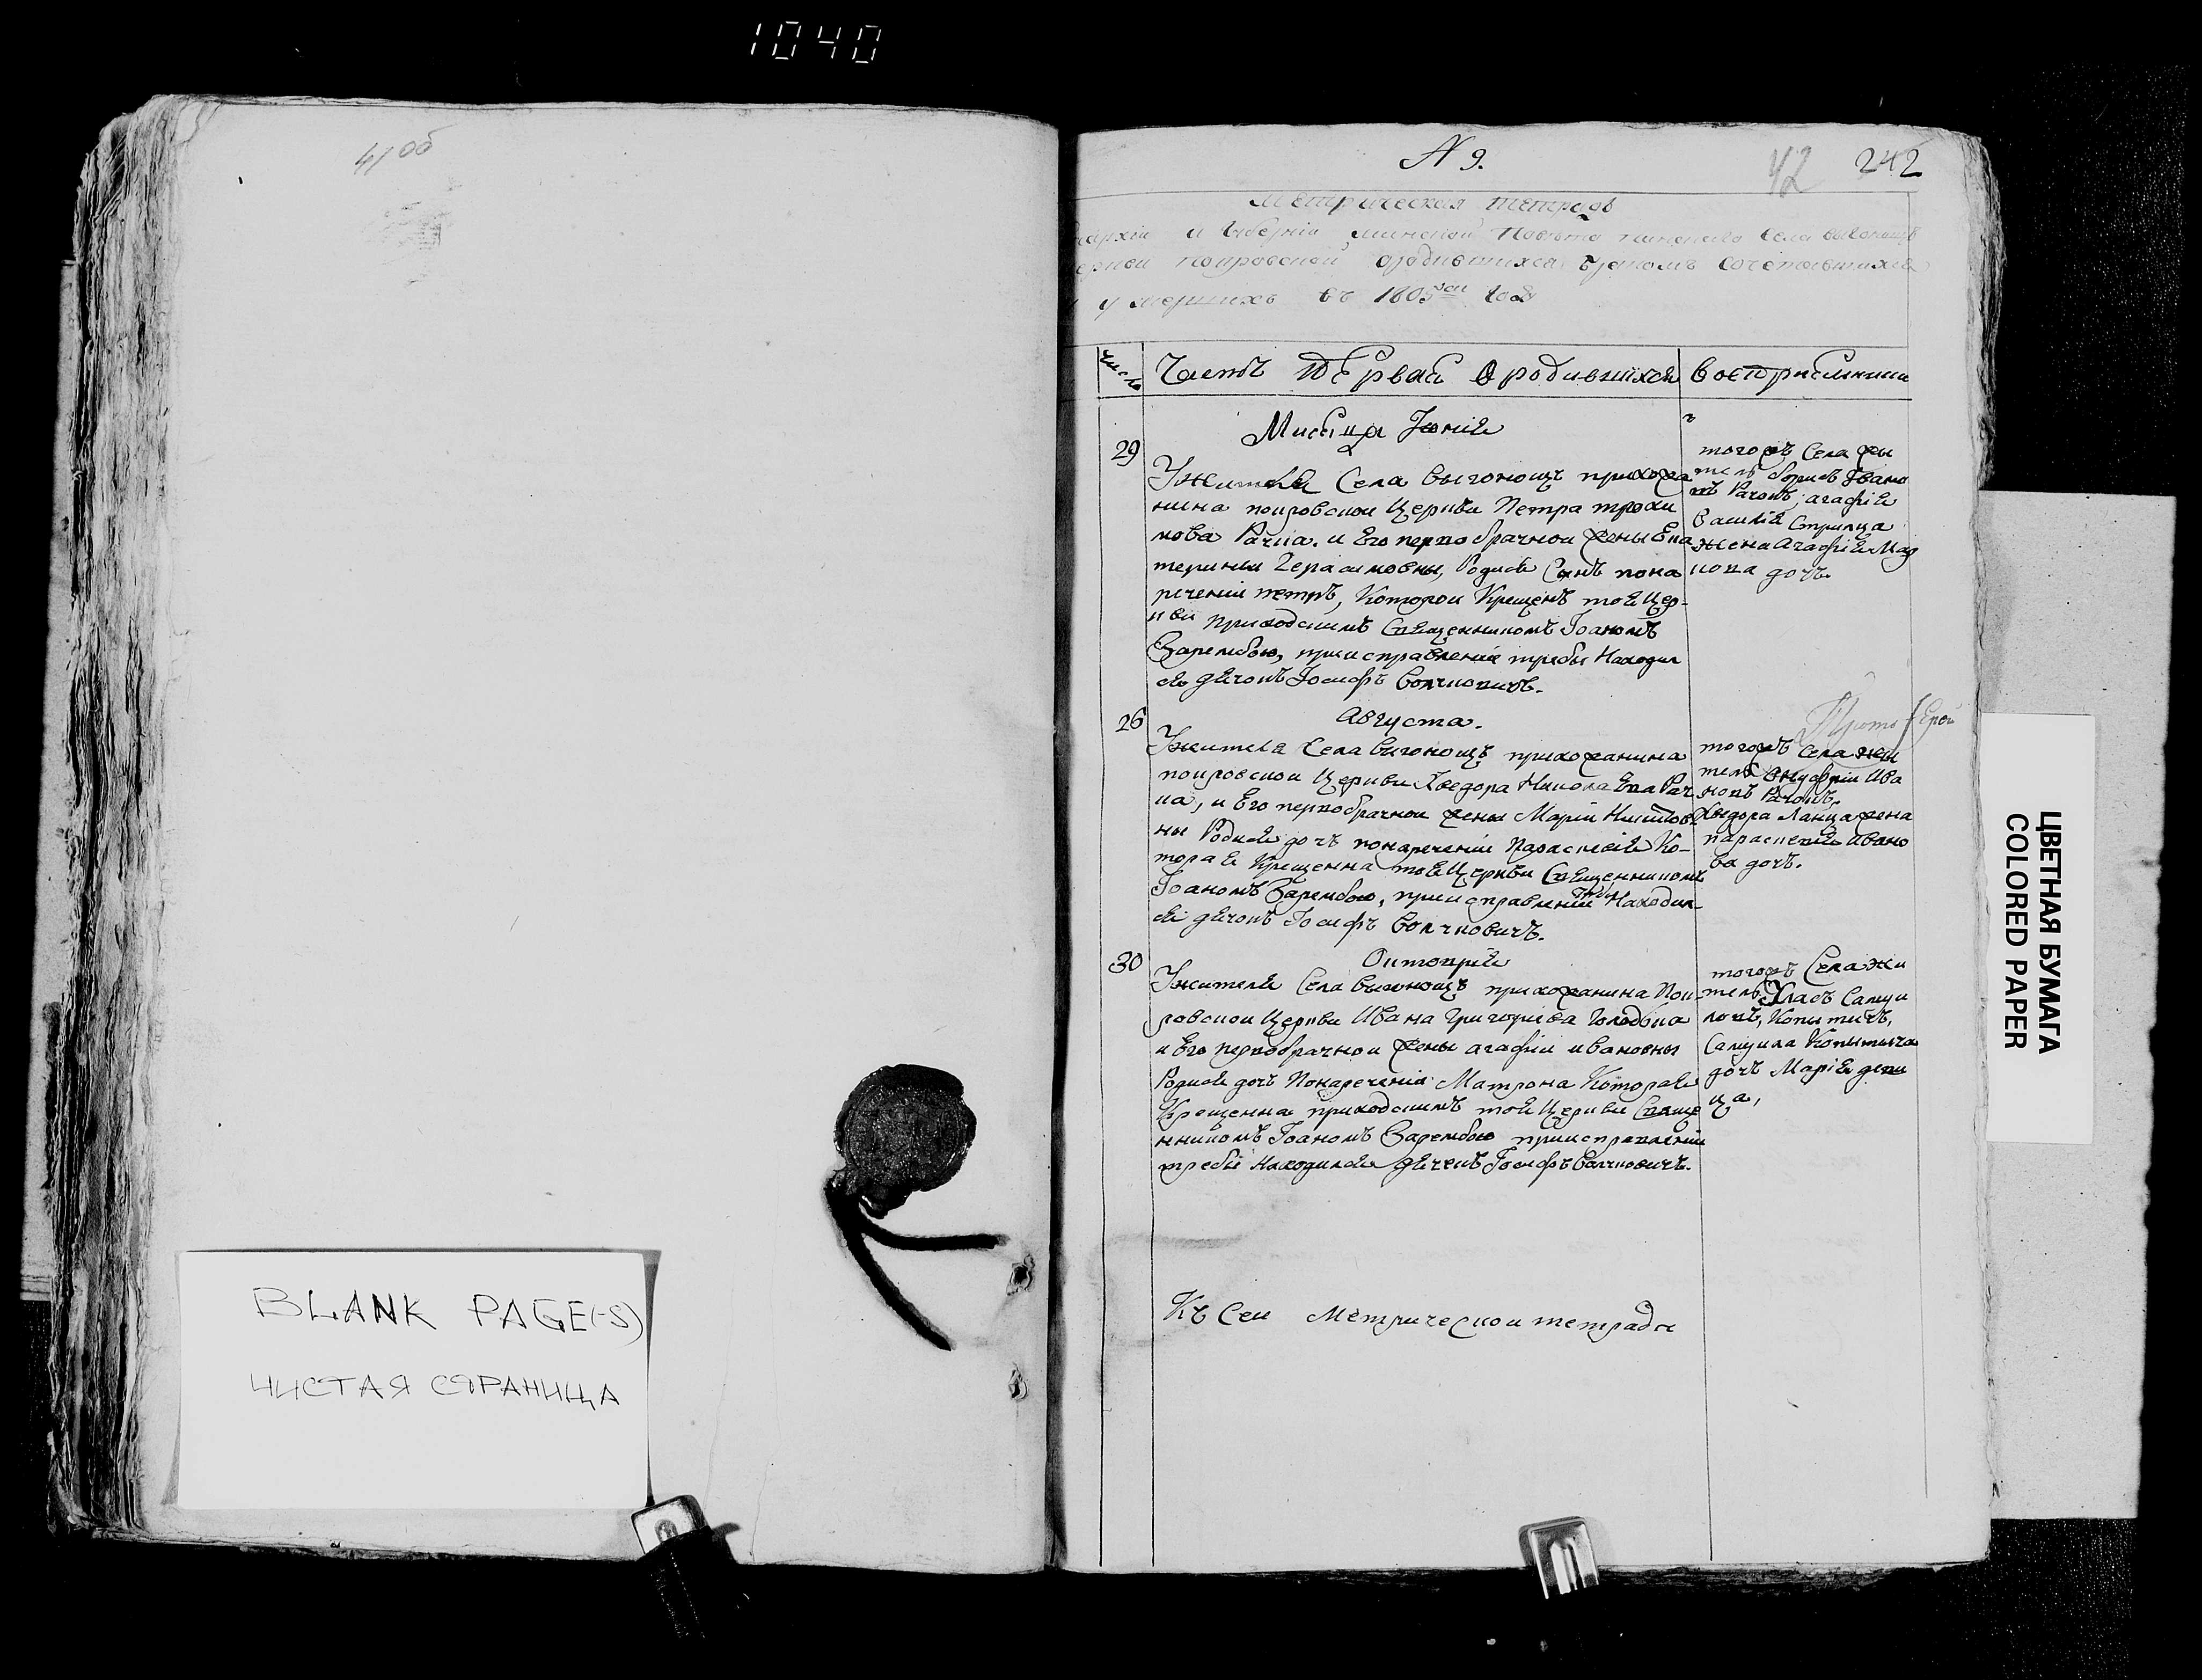 1040
41 об
N 9.
42 242
Метрическая тетрадь
и Губерніи минской Повѣта пинскаго Села выгонощъ
покровской ородившихся бракомъ сочетавшихся
умершихъ въ 1805 году
число
Часть Первая о родившихся
восприемники
Мисяца Іюнія
29
Ужителя Села выгонощъ прихожа
нина покровской Церкви Петра трохи
мова Рачка. и Его первобрачной жены Ека
терины Герасимовны, Родися Сынъ пона
речении петръ, Которой Крещенъ тоя Цер-
кви приходскимъ Священникомъ Іоаномъ
Зарембою, приисправленіе требы Находил
ся дячокъ Іосифъ Волчковичъ.
тогожъ Села жи
тель борисъ Ивано
въ Рачокъ, агафія
Василія Стрилца
жена Агафія Мар
кова дочъ.
Августа.
26
Ужителя Села выгонощъ прихожанина
покровской Церкви Феодора Николаева Рач
ка, и Его первобрачной жены Маріи
ны Родися дочъ понаречении Параскевія Ко-
торая Крещенна тоя Церкви Священникомъ
Іоаномъ Зарембою, приисправлении требы Находил-
ся дячокъ Іосифъ Волчковичъ.
Прото Ерей
тогожъ Села жи
тель Онуфрій Ива
новъ Рачокъ.
Феодора Ланца жена
параскевія Ивано
ва дочъ.
Октоврія
30
Ужителя Села выгонощъ прихожанина Пок-
ровской Церкви Ивана Григориева Голодка
и Его первобрачной жены агафіи ивановны
Родися дочъ Понаречении Матрона Которая
Крещенна приходскимъ тоя Церкви Свяще
нникомъ Іоаномъ Зарембою приисправленіи
требы Находился дячекъ Іосифъ Волчковичъ.
тогожъ Села жи
тель Власъ Самуи
ловъ, Копытичъ,
Самуила Копытича
дочъ Марія деви
ца,
Къ Сей Метрической тетради
BLANK PAGE(-S)
ЧИСТАЯ СТРАНИЦА
ЦВЕТНАЯ БУМАГА
COLORED PAPER